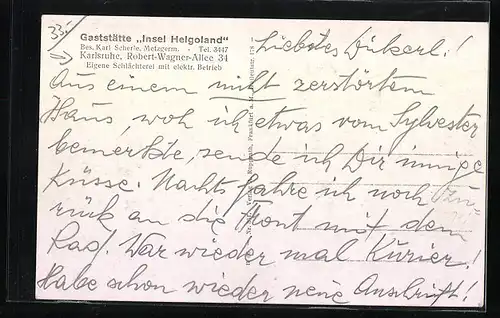 33.)
Gaststätte „Insel Helgoland“
Bes. Karl Scherle, Metzgerm. - Tel. 3447
Karlsruhe, Robert-Wagner-Allee 34
Eigene Schlächterei mit elektr. Betrieb
Liebstes Dickerl!
Aus einem nicht zerstörtem
Haus, woh ich etwas vom Sylvester
bemerkte, sende ich Dir innige
Küsse. Nachts fahre ich noch zu-
rück an die Front mit dem
Rad. War wieder mal Kurier!
Habe schon wieder neue Anschrift!